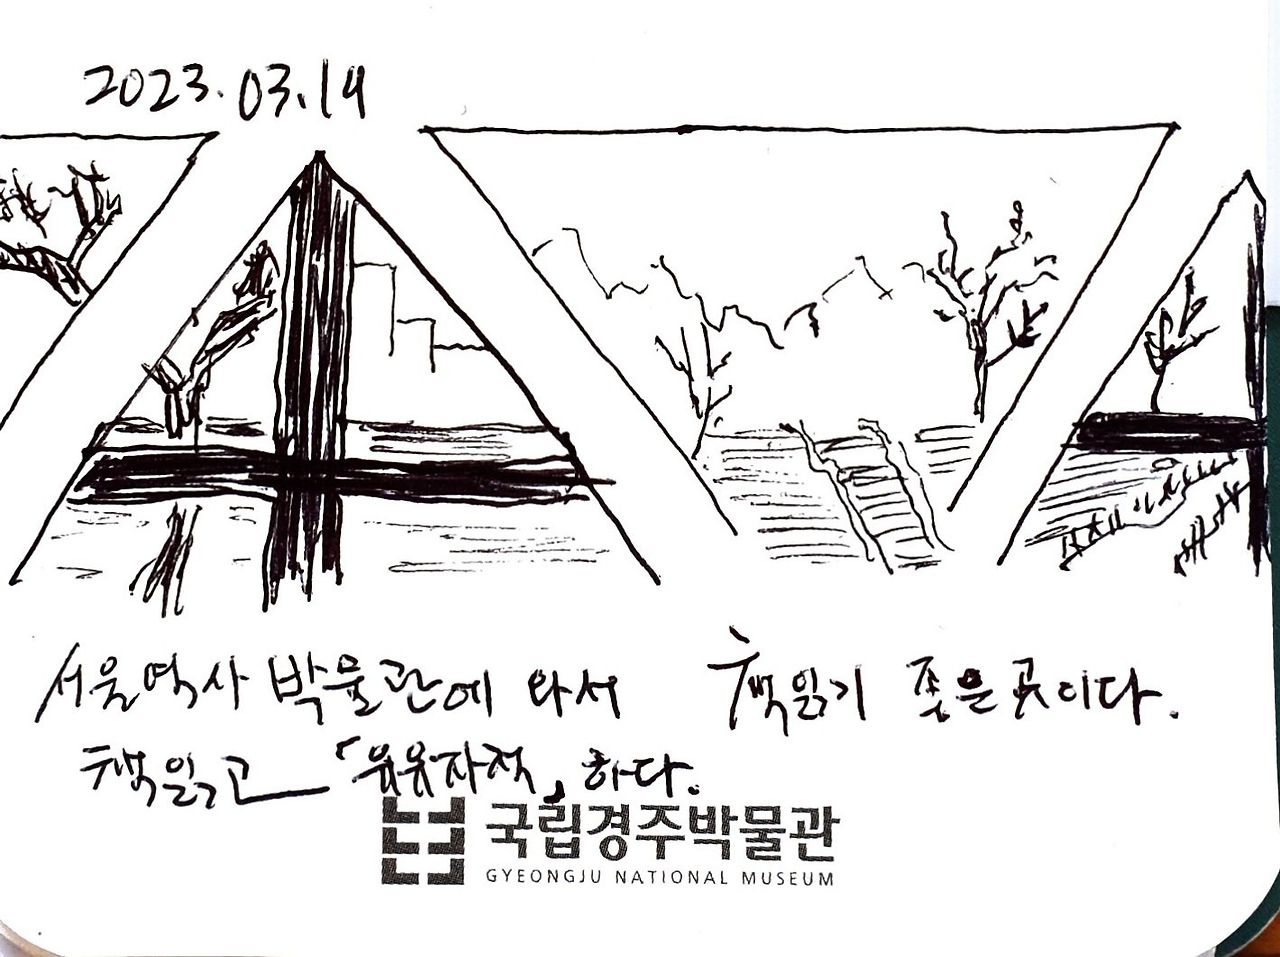 2023.03.14
서울역사박물관에 와서 책읽기 좋은 곳이다.
책읽고 「유유자적」하다.
국립경주박물관
GYEONGJU NATIONAL MUSEUM